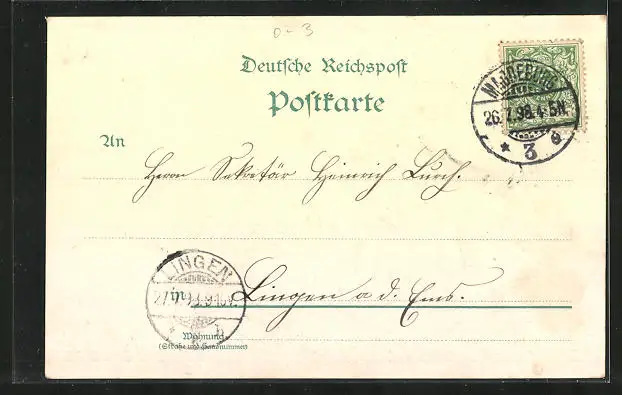 0-3
Deutsche Reichspost
Postkarte
MAGDEBURG
26.7.98.4-5N.
* 3
An
Herrn Sekretär Heinrich Lurch.
LINGEN
in Lingen a d. Ems.
Wohnung
(Straße und Hausnummer)